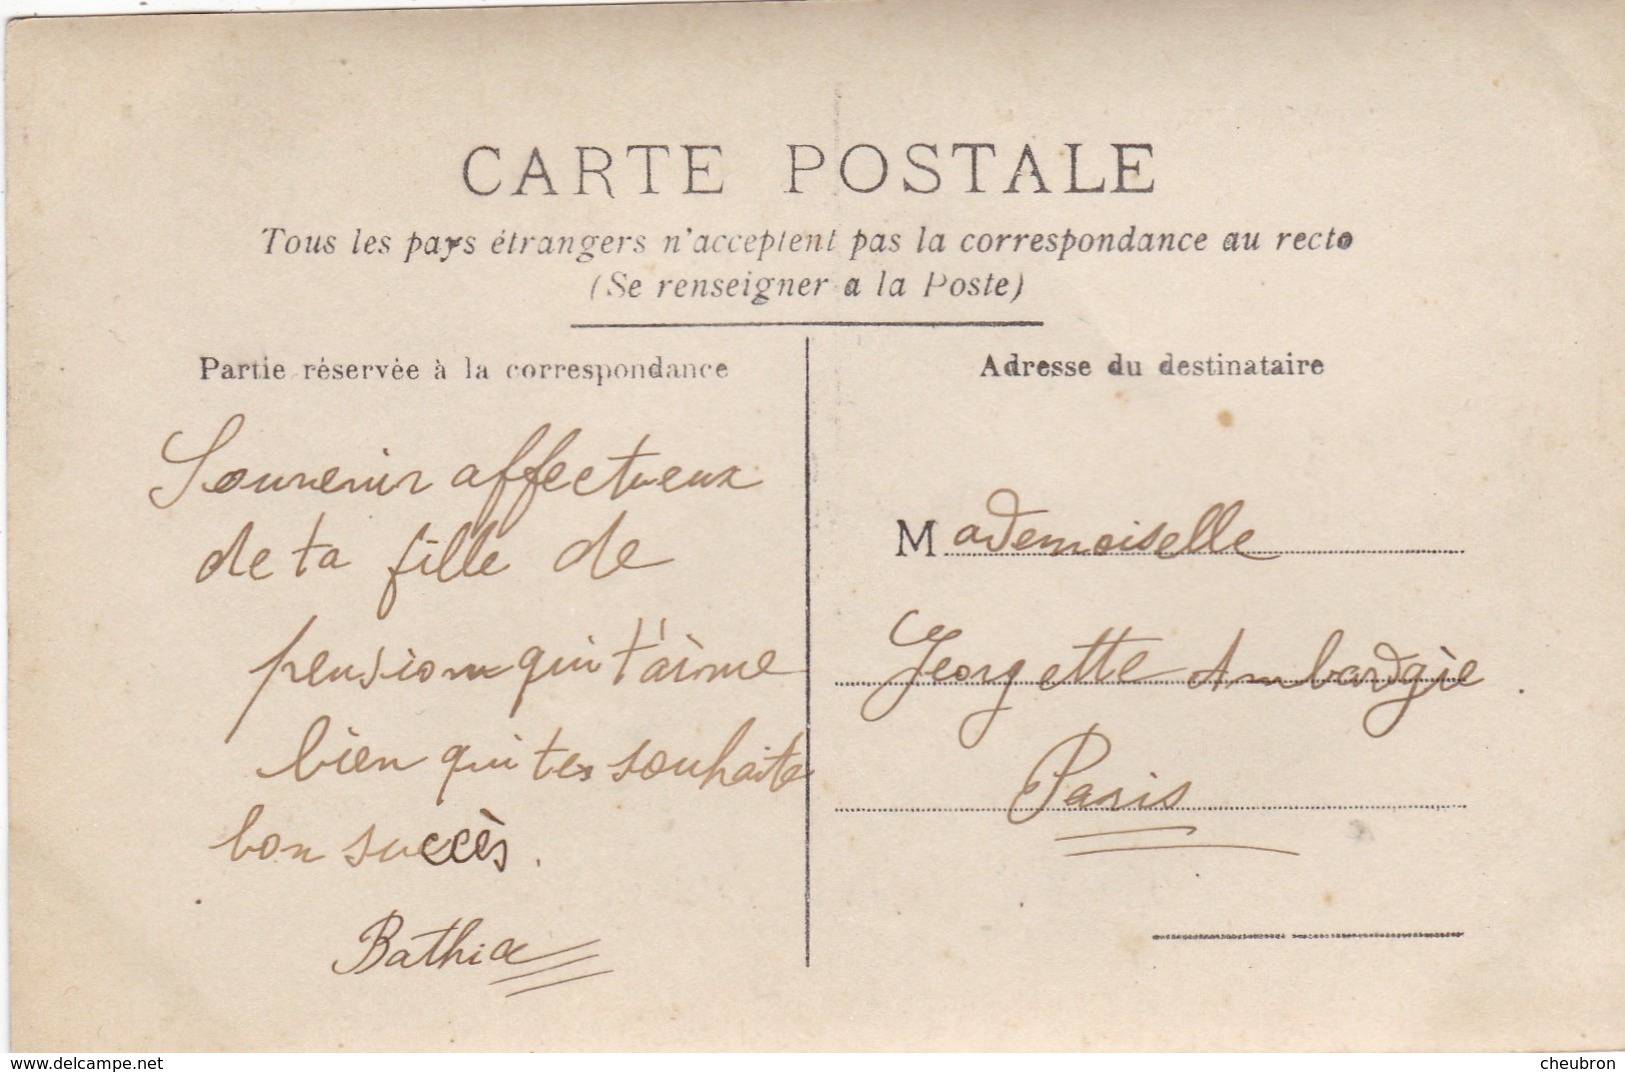 CARTE POSTALE
Tous les pays étrangers n'acceptent pas la correspondance au recto
(Se renseigner a la Poste)
Partie réservée à la correspondance
Souvenir affectueux
de ta fille de
pension qui t'aime
bien qui te souhaite
bon succès.
Bathia
Adresse du destinataire
Mademoiselle
Georgette Ambardgie
Paris
www.delcampe.net
cheubron